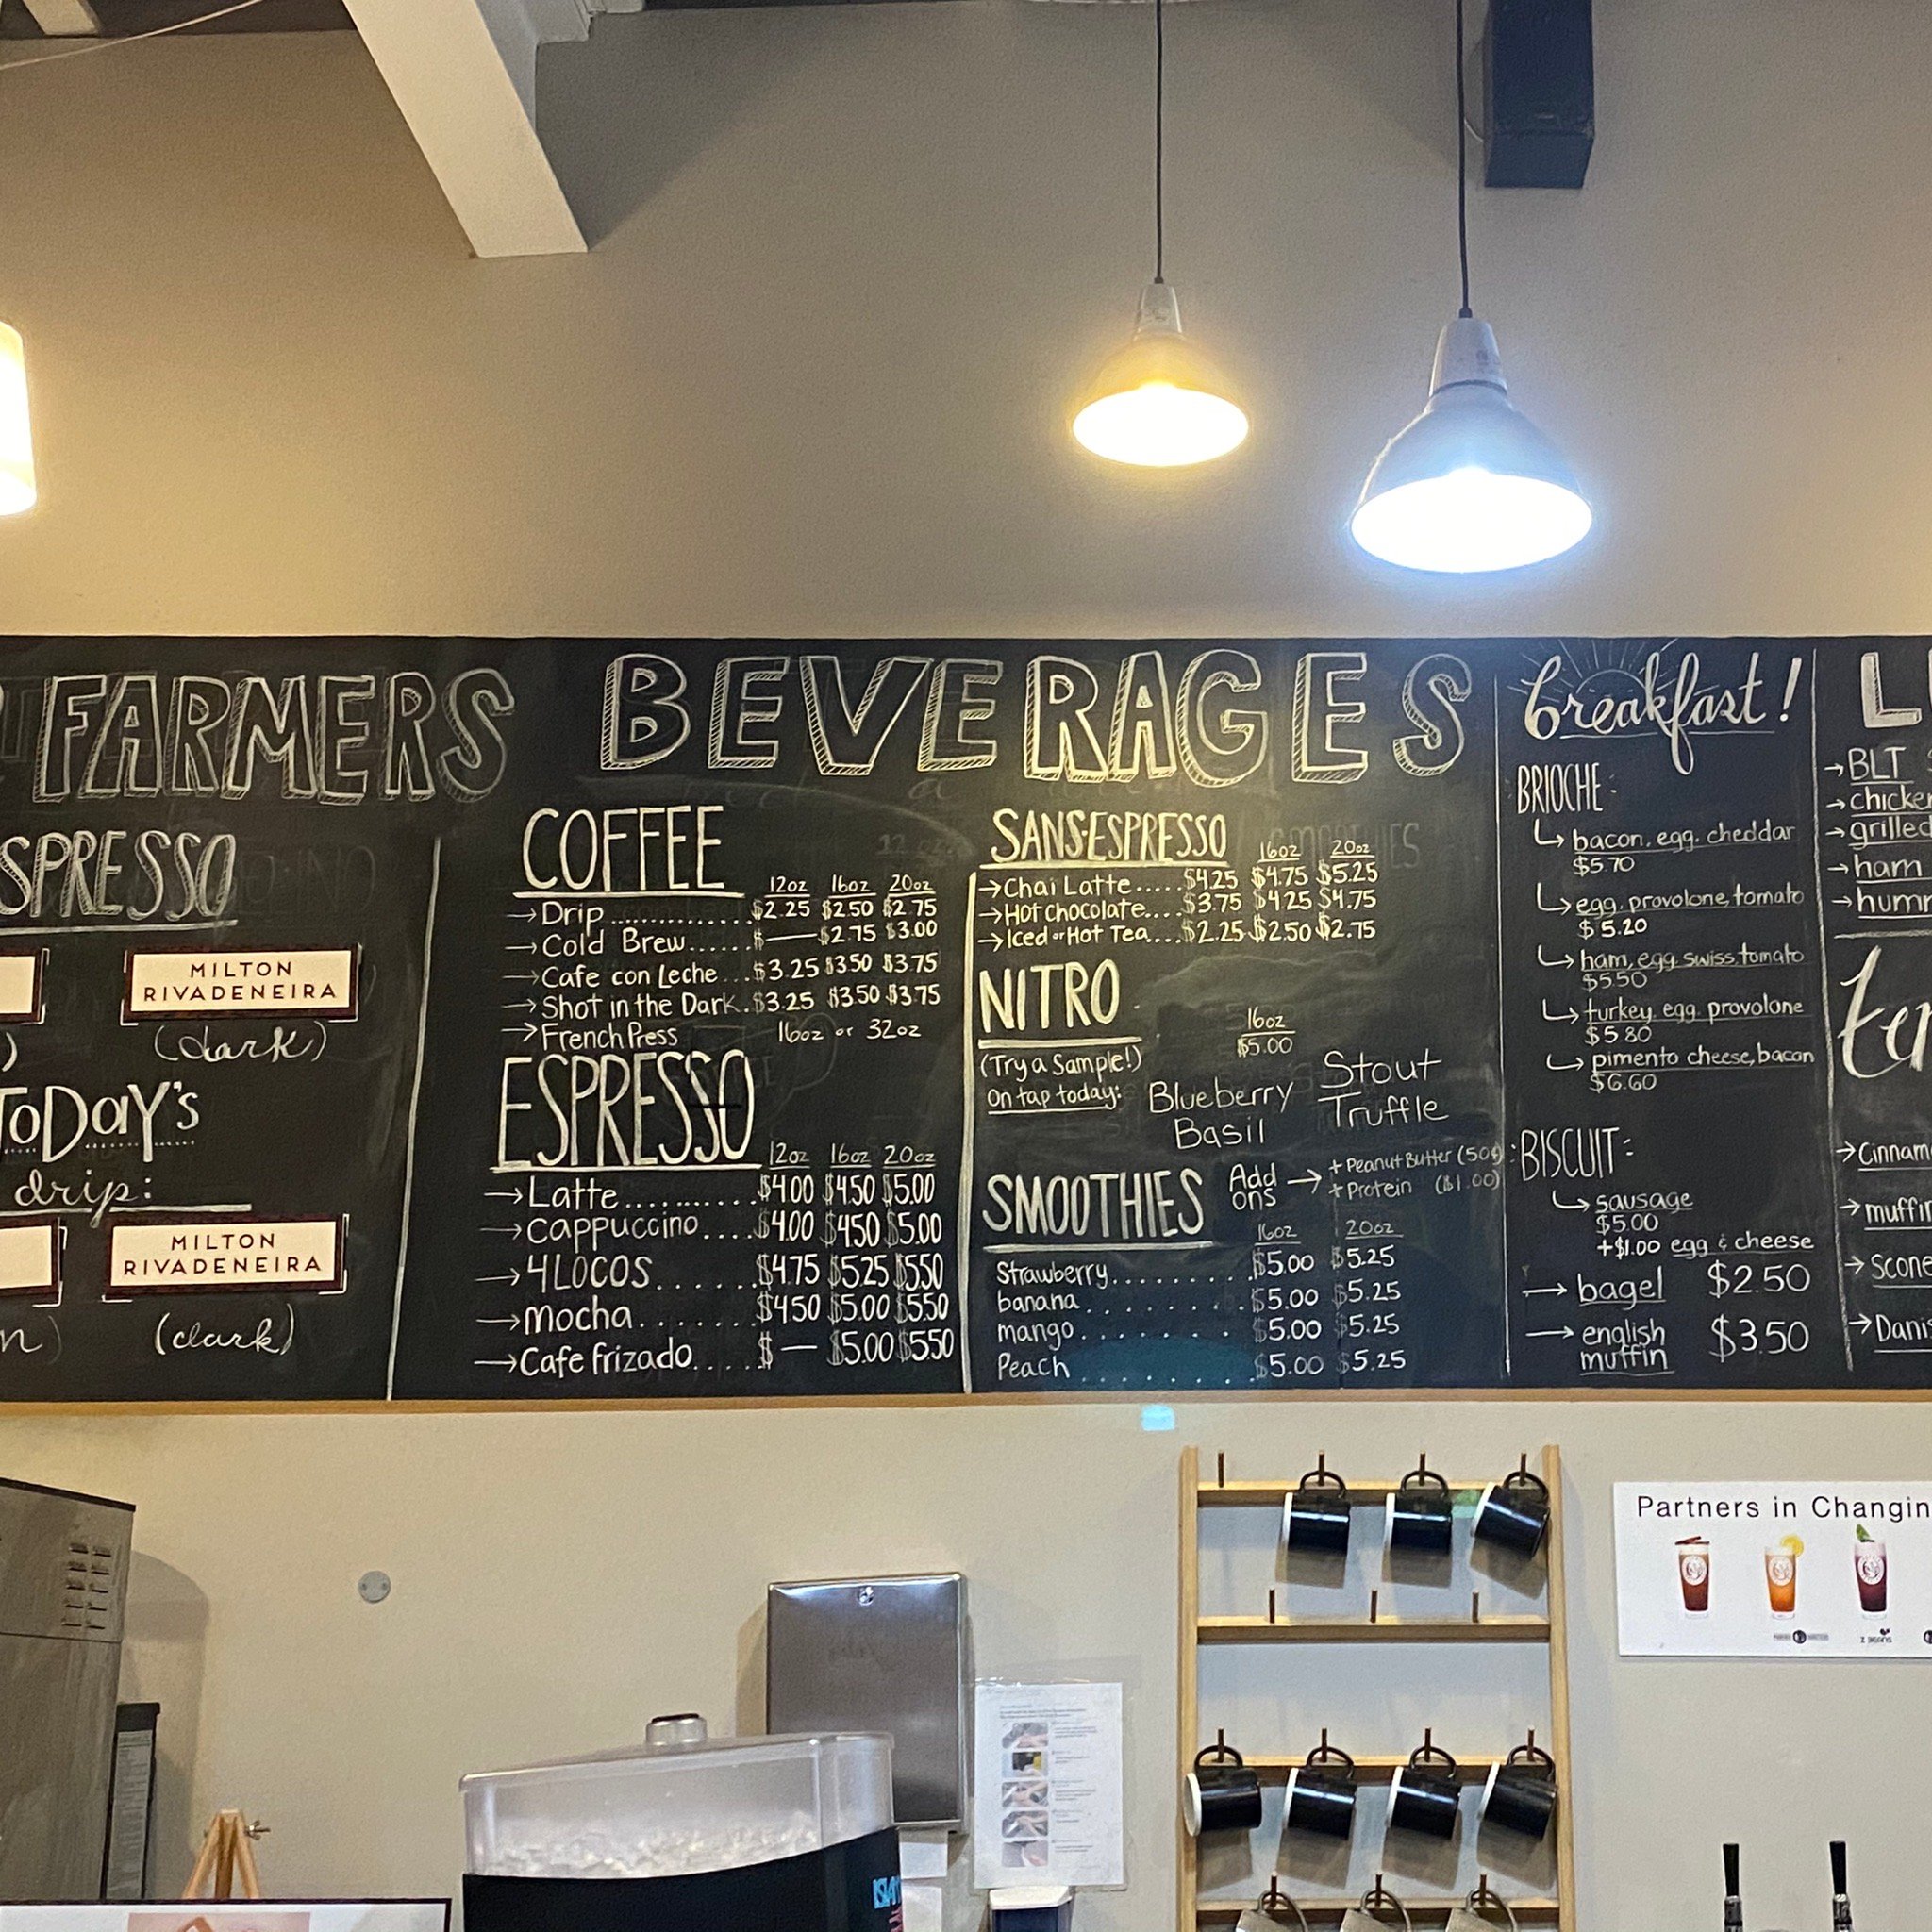 FARMERS
SPRESSO
MILTON
RIVADENEIRA
(dark)
TODAY'S
drip:
MILTON
RIVADENEIRA
(dark)
BEVERAGES
COFFEE
12oz 16oz 20oz
→Drip.............$2.25 $2.50 $2.75
→Cold Brew......$— $2.75 $3.00
→Cafe con Leche...$3.25 $3.50 $3.75
→Shot in the Dark.$3.25 $3.50 $3.75
→French Press 16oz or 32oz
ESPRESSO
12oz 16oz 20oz
→Latte..........$4.00 $4.50 $5.00
→Cappuccino....$4.00 $4.50 $5.00
→4LOCOS......$4.75 $5.25 $5.50
→Mocha.......$4.50 $5.00 $5.50
→Cafe frizado.....$— $5.00 $5.50
SANS-ESPRESSO
16oz 20oz
→Chai Latte.....$4.25 $4.75 $5.25
→Hot chocolate....$3.75 $4.25 $4.75
→Iced or Hot Tea...$2.25 $2.50 $2.75
NITRO
16oz
$5.00
(Try a Sample!)
On tap today:
Blueberry
Basil
Stout
Truffle
SMOOTHIES
Add
ons →
+ Peanut Butter (50¢)
+ Protein ($1.00)
16oz 20oz
Strawberry.........$5.00 $5.25
banana.........$5.00 $5.25
mango........$5.00 $5.25
Peach........$5.00 $5.25
breakfast!
BRIOCHE-
bacon, egg, cheddar
$5.70
egg, provolone, tomato
$5.20
ham, egg, swiss, tomato
$5.50
turkey, egg, provolone
$5.80
pimento cheese, bacon
$6.60
BISCUIT:
sausage
$5.00
+$1.00 egg & cheese
→ bagel $2.50
→ english
muffin $3.50
L
→BLT
→chicke
→grilled
→ham
→humm
→Cinnam
→muffin
→Scone
→Danis
Partners in Changin